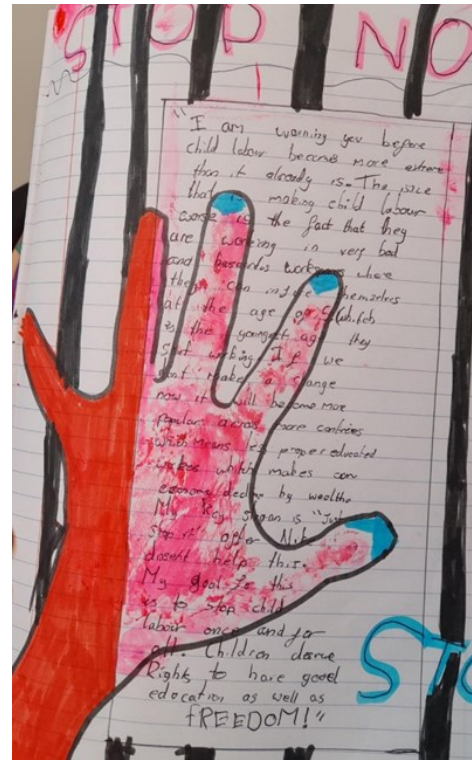 STOP NO
"I am warning you before
child labour becomes more extreme
than it already is. The issue
that is making child labour
worse is the fact that they
are working in very bad
and where
they can themselves
at the age of 5 (which
is the youngest age they
start working. If we
dont make a change
now it will become more
popular across more contries
which means les proper educated
which makes
by wealthe
My key slogan is "Just
stop it" after
doesent help this.
My goal for this
is to stop child
labour once and for
all. Children deserve
Rights to have good
edocation as well as
fREEDOM!"
STO